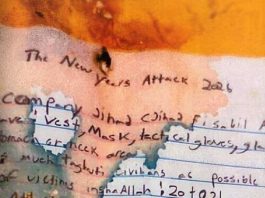 The New Years Attack 2026
Company Jihad (Jihad Fi sabil A
ave: Vest, Mask, tactical gloves, gl
omach or neck area
much taghuti civilians as possible
of victims inshaAllah: 20 to 21